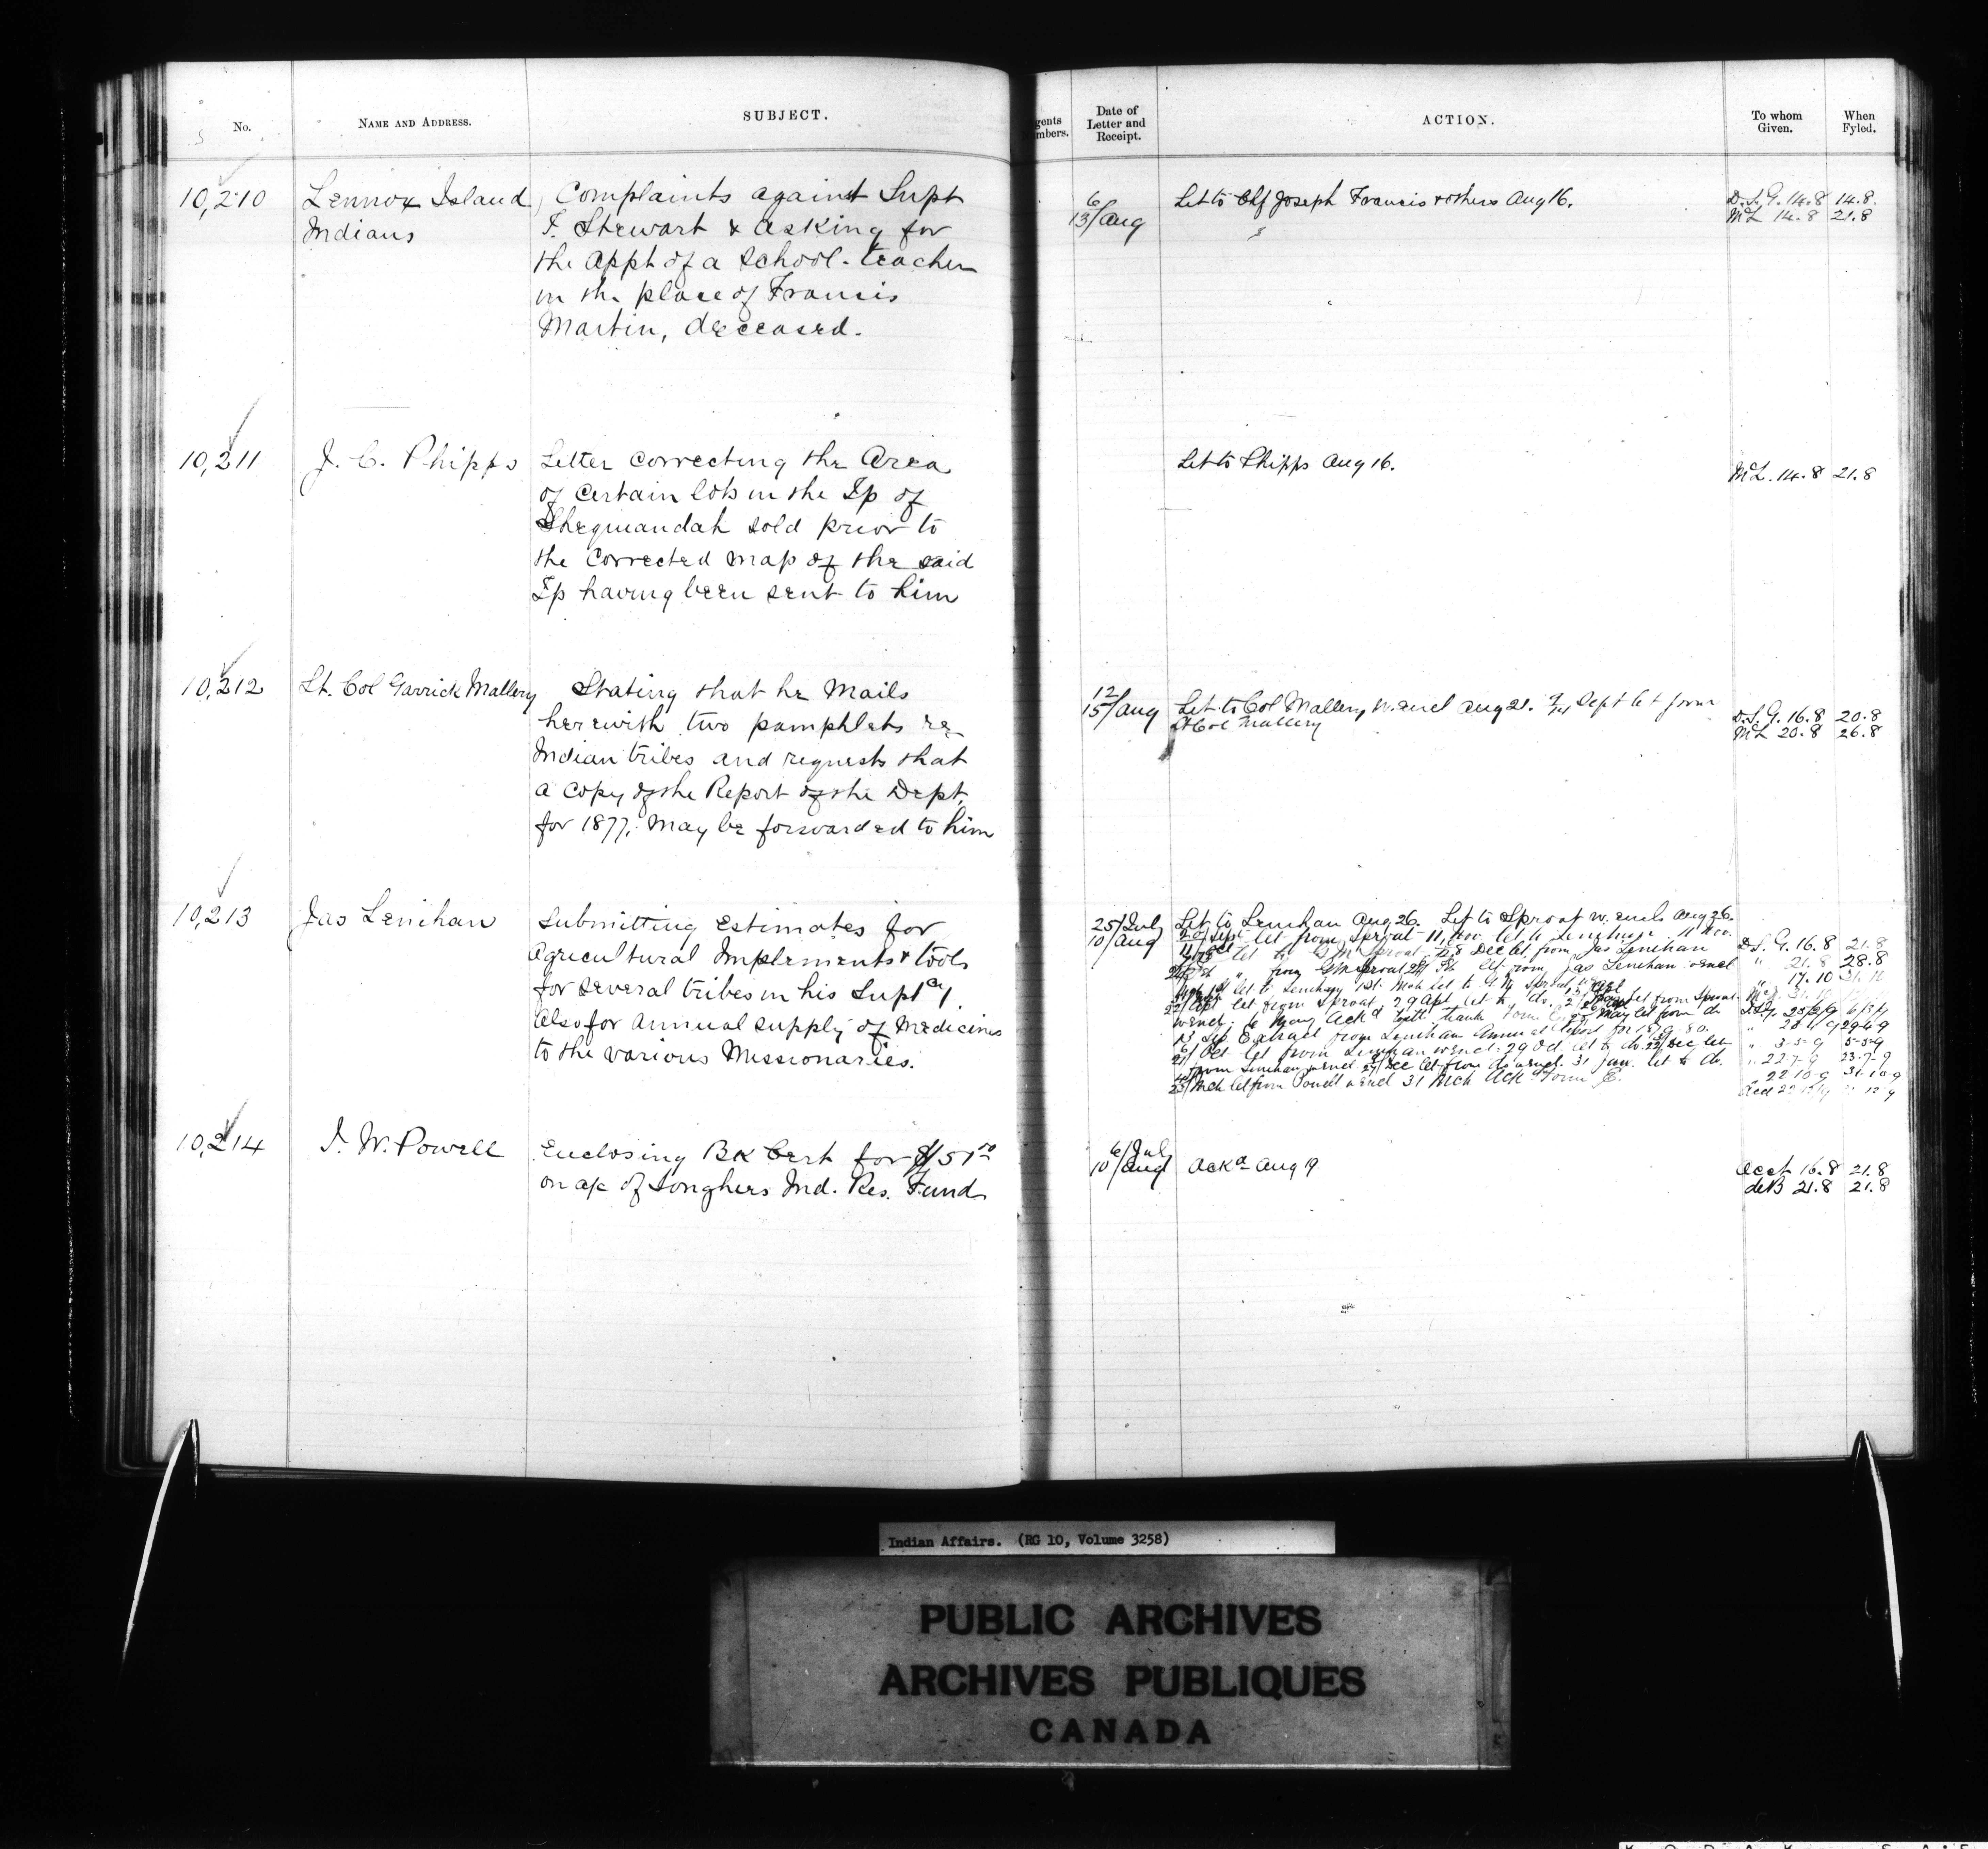 No.
NAME AND ADDRESS.
SUBJECT.
Agents Numbers.
Date of Letter and Receipt.
ACTION.
To whom Given.
When Fyled.
10,210
Lennox Island
Indians
Complaints against Supt
T. Stewart & asking for
the appt of a School-teacher
in the place of Francis
Martin, deceased.
6
13/Aug
Let to Chf Joseph Francis & others Aug 16.
D.S.G. 14.8 14.8.
McL 14.8 21.8
10,211
J. C. Phipps
Letter correcting the Area
of certain lots in the Tp of
Sheguiandah sold prior to
the corrected map of the said
Tp having been sent to him
Let to Phipps Aug 16.
McL. 14.8 21.8
10,212
Lt. Col Garrick Mallery
Stating that he mails
herewith two pamphlets re
Indian tribes and requests that
a copy of the Report of the Dept.
for 1877, may be forwarded to him
12
15/Aug
Let to Col Mallery w. encl Aug 21. Sept let from
Lt Col Mallery
D.S.G. 16.8 20.8
McL 20.8 26.8
10,213
Jas Lenihan
Submitting Estimates for
Agricultural Implements & tools
for several tribes in his Suptcy.
Also for annual supply of Medicines
to the various Missionaries.
25/July
10/Aug
Let to Lenihan Aug 26. Let to Sproat w. encls Aug 26.
Sept let from Sproat 11 Nov let to 11 Nov.
let to G M Sproat Dec let from Jas Lenihan
from GM Sproat let from Jas Lenihan w encl
let to Lenihan 1st Mch let to G M Sproat
Apl let from Sproat, 29 Apl let to do. let from Sproat
w encl. 6 May Ackd with thanks form May let from do
13 Sep Extract from Lenihan Annual Report for 1879-80.
Oct let from Lenihan w encl. 29 Od let to do. 22 Dec let
from Lenihan w encl Dec let from do w encl. 31 Jan. let to do.
Mch let from Powell w encl 31 Mch Ackd form E.
D.S.G. 16.8 21.8
" 21.8 28.8
" 17.10 31.10
" 3-5-9 5-5-9
" 22.7.9 23-7-9
" 22 10-9 31-10-9
10,214
I. W. Powell
Enclosing Bk Cert for $151.00
on a/c of Songhees Ind. Res. Fund
6/July
10/Aug
Ackd Aug 19
Acct 16.8 21.8
deB 21.8 21.8
Indian Affairs. (RG 10, Volume 3258)
PUBLIC ARCHIVES
ARCHIVES PUBLIQUES
CANADA